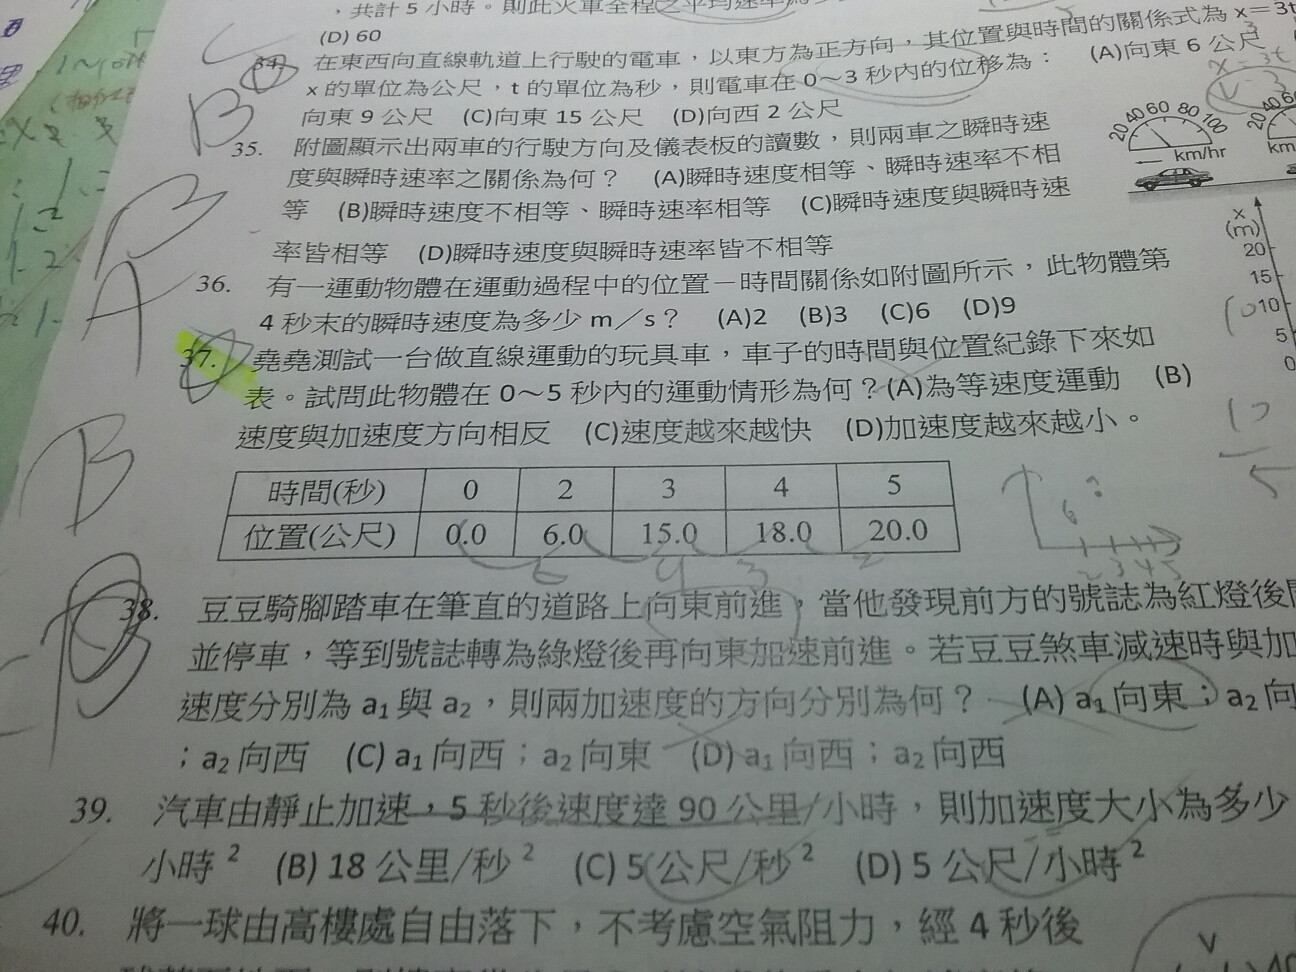 ，共計 5 小時。則此火車全程之平均速率為多少
(D) 60
34. 在東西向直線軌道上行駛的電車，以東方為正方向，其位置與時間的關係式為 x＝3t
x 的單位為公尺，t 的單位為秒，則電車在 0～3 秒內的位移為： (A)向東 6 公尺
向東 9 公尺 (C)向東 15 公尺 (D)向西 2 公尺
35. 附圖顯示出兩車的行駛方向及儀表板的讀數，則兩車之瞬時速
度與瞬時速率之關係為何？ (A)瞬時速度相等、瞬時速率不相
等 (B)瞬時速度不相等、瞬時速率相等 (C)瞬時速度與瞬時速
率皆相等 (D)瞬時速度與瞬時速率皆不相等
20 40 60 80 100
km/hr
20 40 60
km
36. 有一運動物體在運動過程中的位置－時間關係如附圖所示，此物體第
4 秒末的瞬時速度為多少 m／s？ (A)2 (B)3 (C)6 (D)9
x
(m)
20
15
10
5
0
37. 堯堯測試一台做直線運動的玩具車，車子的時間與位置紀錄下來如
表。試問此物體在 0～5 秒內的運動情形為何？(A)為等速度運動 (B)
速度與加速度方向相反 (C)速度越來越快 (D)加速度越來越小。
時間(秒) 0 2 3 4 5
位置(公尺) 0.0 6.0 15.0 18.0 20.0
6 9 3 2
38. 豆豆騎腳踏車在筆直的道路上向東前進，當他發現前方的號誌為紅燈後
並停車，等到號誌轉為綠燈後再向東加速前進。若豆豆煞車減速時與加
速度分別為 a₁ 與 a₂，則兩加速度的方向分別為何？ (A) a₁ 向東；a₂ 向
；a₂ 向西 (C) a₁ 向西；a₂ 向東 (D) a₁ 向西；a₂ 向西
39. 汽車由靜止加速，5 秒後速度達 90 公里/小時，則加速度大小為多少
小時² (B) 18 公里/秒² (C) 5 公尺/秒² (D) 5 公尺/小時²
40. 將一球由高樓處自由落下，不考慮空氣阻力，經 4 秒後